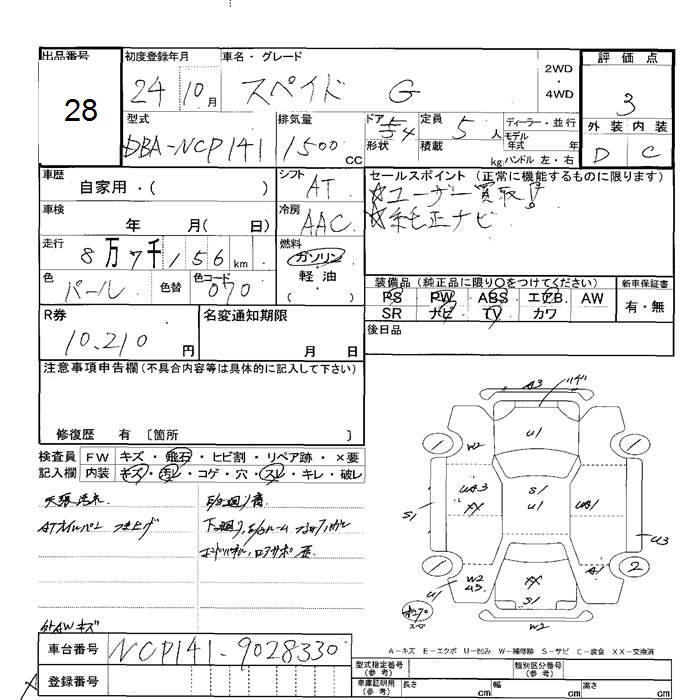 出品番号 初度登録年月 車名・グレード 評価点
28 24 10月 スペイド G 2WD・4WD 3
型式 排気量 ドア形状 定員 ディーラー・並行 外装 内装
DBA-NCP141 1500cc 5 人 積載 kg モデル年式 年式 ハンドル 左・右 D C
車歴 自家用・( ) シフト AT セールスポイント (正常に機能するものに限ります)
☆ユーザー買取!
車検 年 月( 日) 冷房 AAC ☆純正ナビ
走行 8万7千156km 燃料 ガソリン・軽油・( )
色 パール 色替 色コード 070
装備品 (純正品に限り○をつけてください) 新車保証書
PS PW ABS エアB AW 有・無
SR ナビ TV カワ
R券 10,210円 名変通知期限 月 日 後日品
注意事項申告欄(不具合内容等は具体的に記入して下さい)
修復歴 有 〔箇所 〕
検査員 FW キズ・飛石・ヒビ割・リペア跡・×要
記入欄 内装 キズ・汚レ・コゲ・穴・スレ・キレ・破レ
ATオイルパン
外AWキズ
A3
U1
W2
UA3
XX
S1
U1
UA1
S1
U3
A1
W2
U3
U1
XX
S1
W2
1 1 1 2
スペ
A-キズ E-エクボ U-凹み W-補修跡 S-サビ C-腐食 XX-交換済
車台番号 NCP141-9028330
型式指定番号(参考) 類別区分番号(参考)
登録番号
車庫証明用(参考) 長さ cm 幅 cm 高さ cm